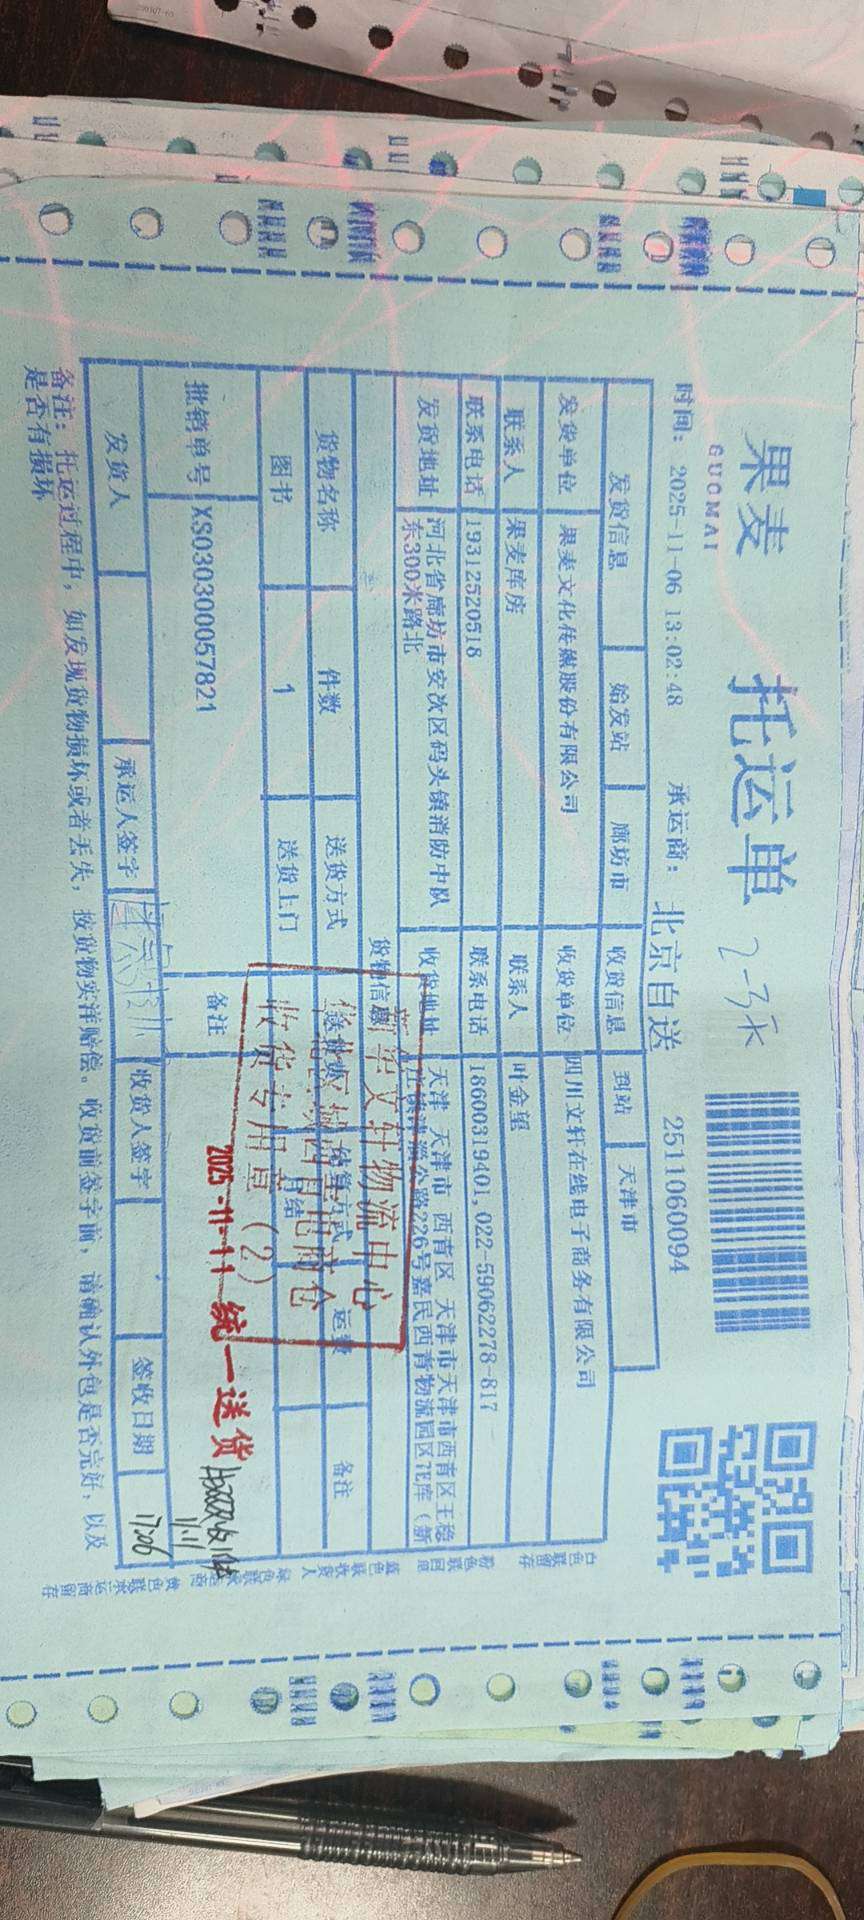 果麦 托运单 2-3天
GUOMAI
2511060094
时间：2025-11-06 13:02:48 承运商：北京自送
发货信息 始发站 廊坊市 收货信息 到站 天津市
发货单位 果麦文化传媒股份有限公司 收货单位 四川文轩在线电子商务有限公司
联系人 果麦库房 联系人 叶金望
联系电话 19312520518 联系电话 18600319401,022-59062278-817
发货地址 河北省廊坊市安次区码头镇消防中队东300米路北 收货地址 天津 天津市 西青区 天津市天津市西青区王稳
公路226号嘉民西青物流园区7E库（新
货物信息
货物名称 件数 送货方式 送货费 结算方式 运费 备注
图书 1 送货上门 月结
批销单号 XS030300057821 备注
发货人 承运人签字 收货人签字 签收日期 17:06
新华文轩物流中心
收货专用章（2）
2025-11-11 统一送货
11.11
备注：托运过程中，如发现货物损坏或者丢失，按货物实洋赔偿。收货前签字前，请确认外包是否完好，以及
是否有损坏
白色联留存
粉色联回单
蓝色联收货人
黄色联承运商留存